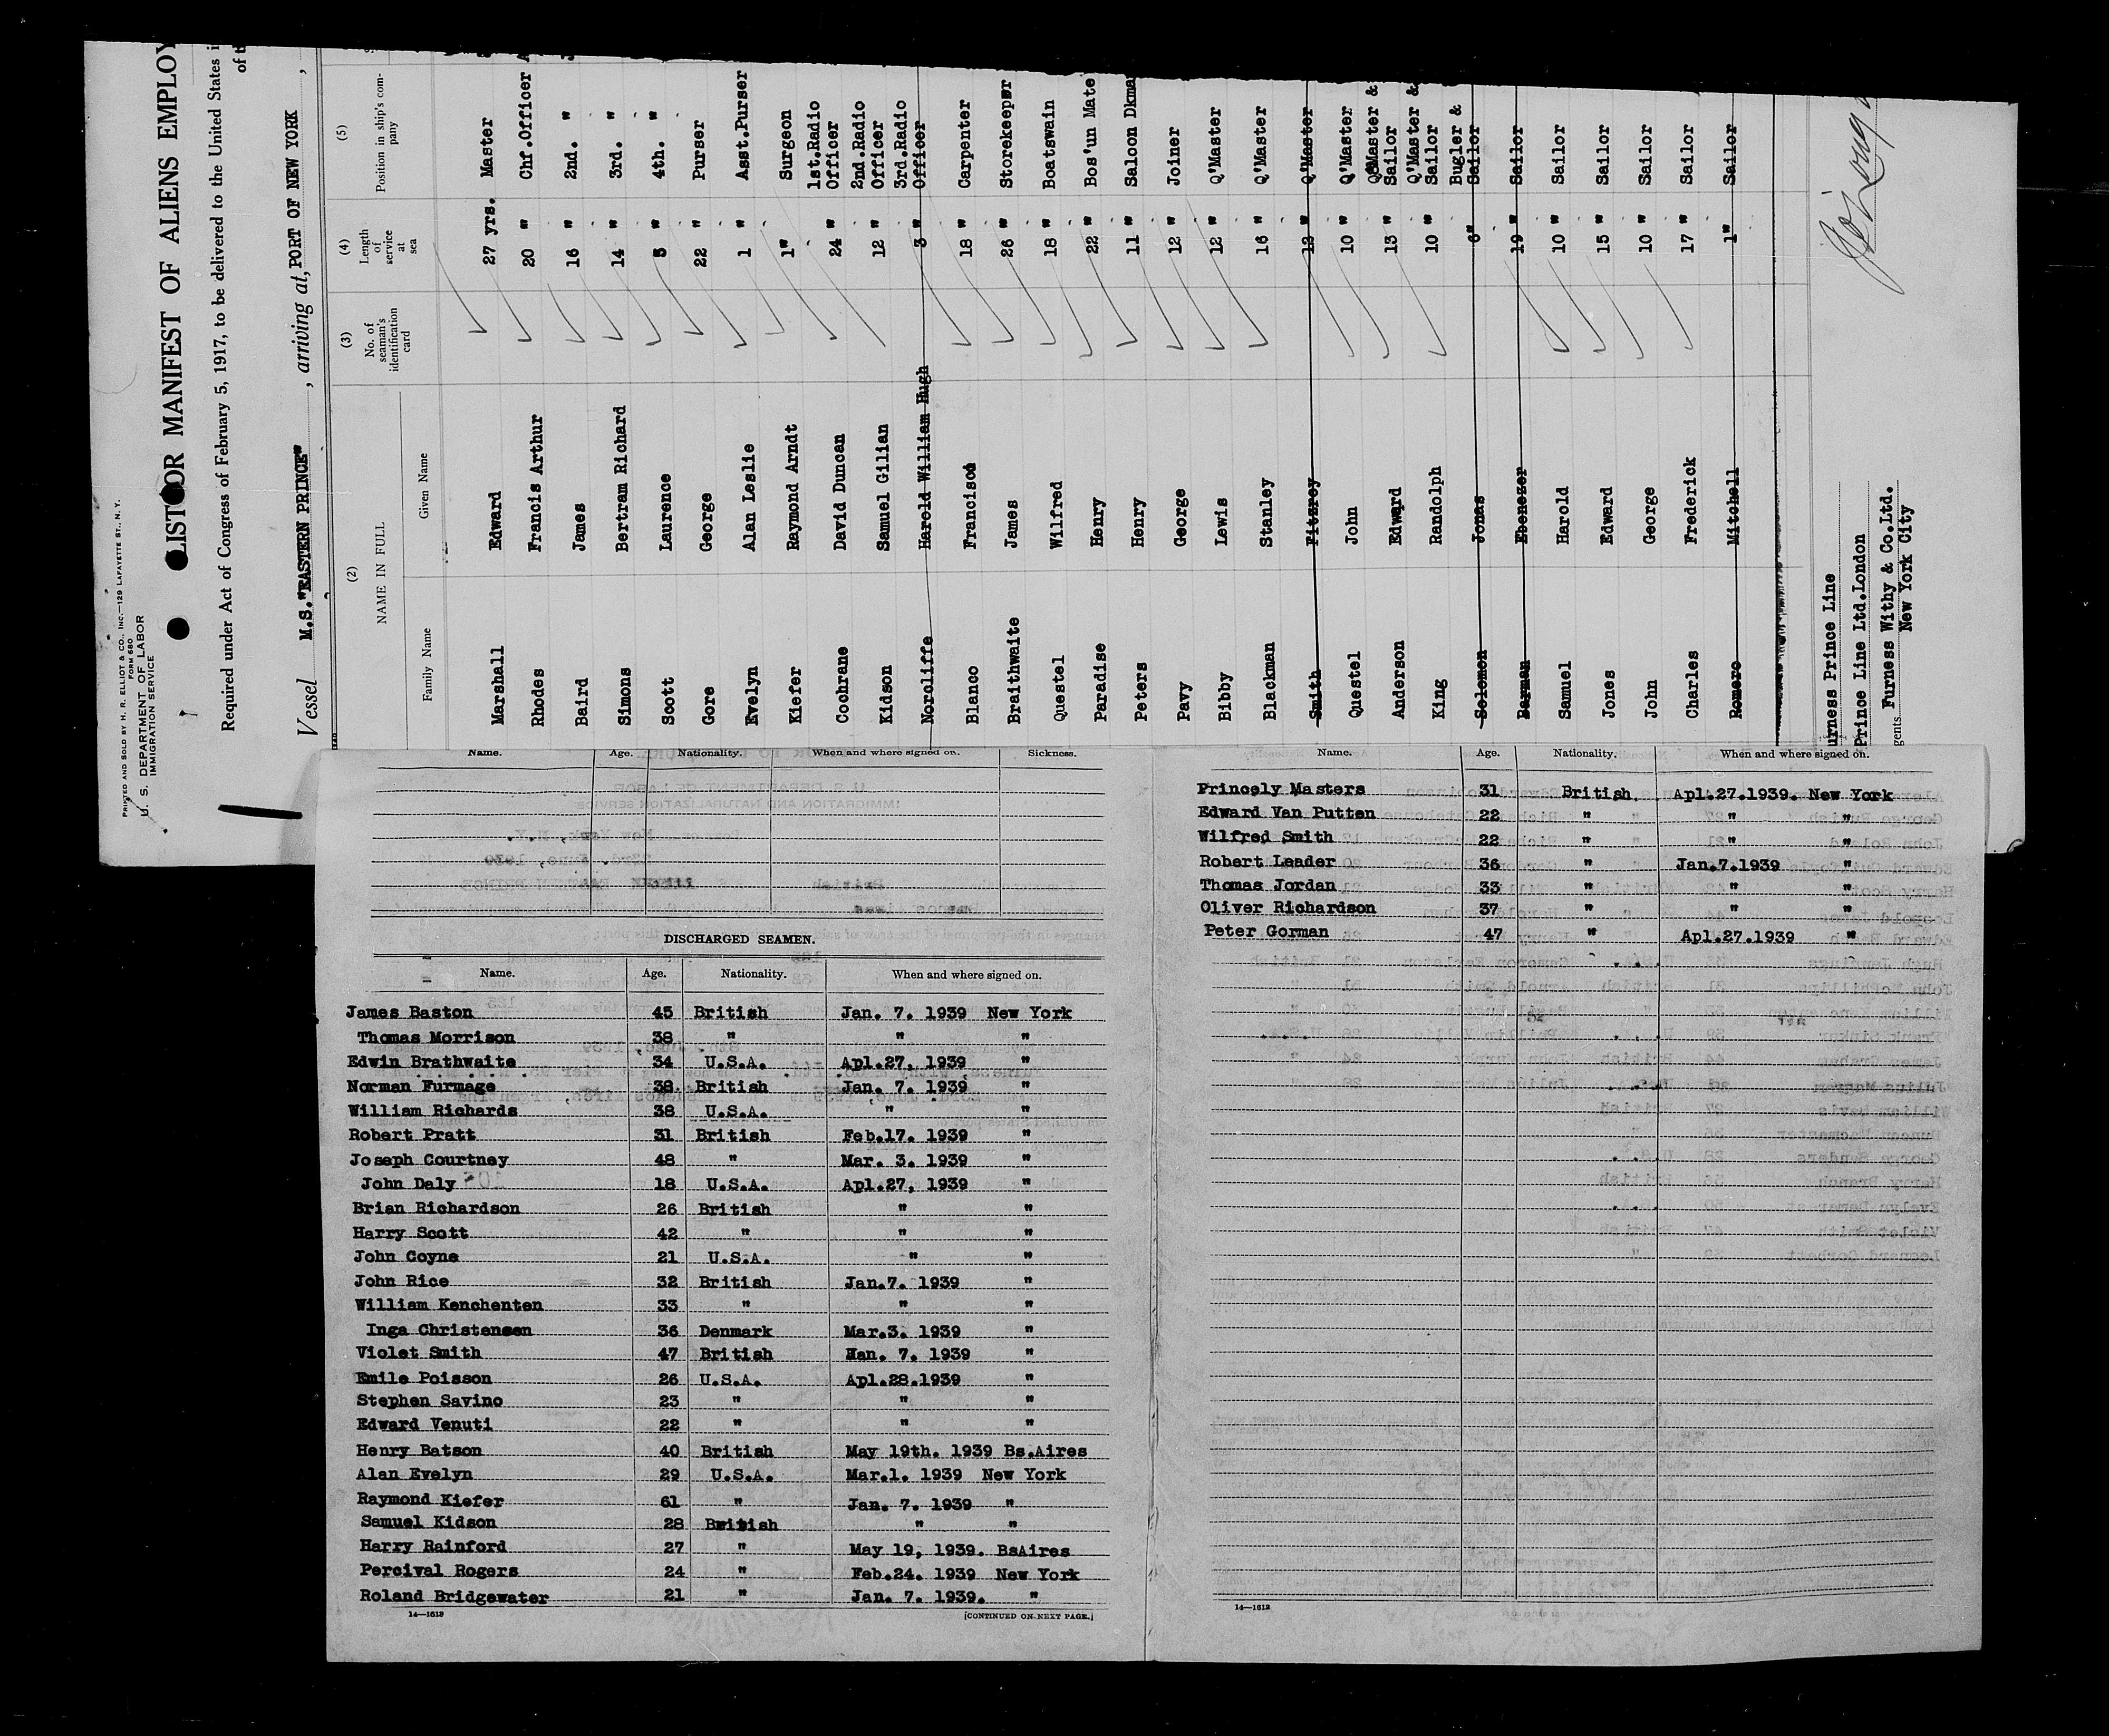 PRINTED AND SOLD BY H. R. ELLIOT & CO., INC.—129 LAFAYETTE ST., N. Y.
FORM 680
U. S. DEPARTMENT OF LABOR
IMMIGRATION SERVICE
LIST OR MANIFEST OF ALIENS EMPLOY
Required under Act of Congress of February 5, 1917, to be delivered to the United States i
of t
Vessel M.S."EASTERN PRINCE", arriving at, PORT OF NEW YORK,
(2) (3) (4) (5)
NAME IN FULL No. of seaman's identification card Length of service at sea Position in ship's company
Family Name Given Name
Marshall Edward 27 yrs. Master
Rhodes Francis Arthur 20 " Chf.Officer
Baird James 16 " 2nd. "
Simons Bertram Richard 14 " 3rd. "
Scott Laurence 5 " 4th. "
Gore George 22 " Purser
Evelyn Alan Leslie 1 " Asst.Purser
Kiefer Raymond Arndt 1" Surgeon
Cochrane David Duncan 24 " 1st.Radio Officer
Kidson Samuel Gilian 12 " 2nd.Radio Officer
Norcliffe Harold William Hugh 3 " 3rd.Radio Officer
Blanco Francisco 18 " Carpenter
Braithwaite James 26 " Storekeeper
Questel Wilfred 18 " Boatswain
Paradise Henry 22 " Bos'un Mate
Peters Henry 11 " Saloon Dkma
Pavy George 12 " Joiner
Bibby Lewis 12 " Q'Master
Blackman Stanley 16 " Q'Master
Smith Fitzroy 12 " Q'Master
Questel John 10 " Q'Master
Anderson Edward 13 " Q'Master & Sailor
King Randolph 10 " Q'Master & Sailor
Solomon Jonas 6" Bugler & Sailor
Barman Ebenezer 19 " Sailor
Samuel Harold 10 " Sailor
Jones Edward 15 " Sailor
John George 10 " Sailor
Charles Frederick 17 " Sailor
Romero Mitchell 1" Sailor
urness Prince Line
Prince Line Ltd.London
gents Furness Withy & Co.Ltd.
New York City
Name. Age. Nationality. When and where signed on. Sickness.
DISCHARGED SEAMEN.
Name. Age. Nationality. When and where signed on.
James Baston 45 British Jan. 7. 1939 New York
Thomas Morrison 38 " " "
Edwin Brathwaite 34 U.S.A. Apl.27, 1939 "
Norman Furmage 38. British Jan. 7. 1939 "
William Richards 38 U.S.A. " "
Robert Pratt 31 British Feb.17. 1939 "
Joseph Courtney 48 " Mar. 3. 1939 "
John Daly 18 U.S.A. Apl.27, 1939 "
Brian Richardson 26 British " "
Harry Scott 42 " " "
John Coyne 21 U.S.A. " "
John Rice 32 British Jan.7. 1939 "
William Kenchenten 33 " " "
Inga Christensen 36 Denmark Mar.3. 1939 "
Violet Smith 47 British Han. 7. 1939 "
Emile Poisson 26 U.S.A. Apl.28.1939 "
Stephen Savino 23 " " "
Edward Venuti 22 " " "
Henry Batson 40 British May 19th. 1939 Bs.Aires
Alan Evelyn 29 U.S.A. Mar.1. 1939 New York
Raymond Kiefer 61 " Jan. 7. 1939 "
Samuel Kidson 28 British " "
Harry Rainford 27 " May 19, 1939. BsAires
Percival Rogers 24 " Feb.24. 1939 New York
Roland Bridgewater 21 " Jan. 7. 1939. "
14—1613 [CONTINUED ON NEXT PAGE.]
Name. Age. Nationality. When and where signed on.
Princely Masters 31 British. Apl.27.1939. New York
Edward Van Putten 22 " " "
Wilfred Smith 22 " " "
Robert Leader 36 " Jan.7.1939 "
Thomas Jordan 33 " " "
Oliver Richardson 37 " " "
Peter Gorman 47 " Apl.27.1939 "
14—1612